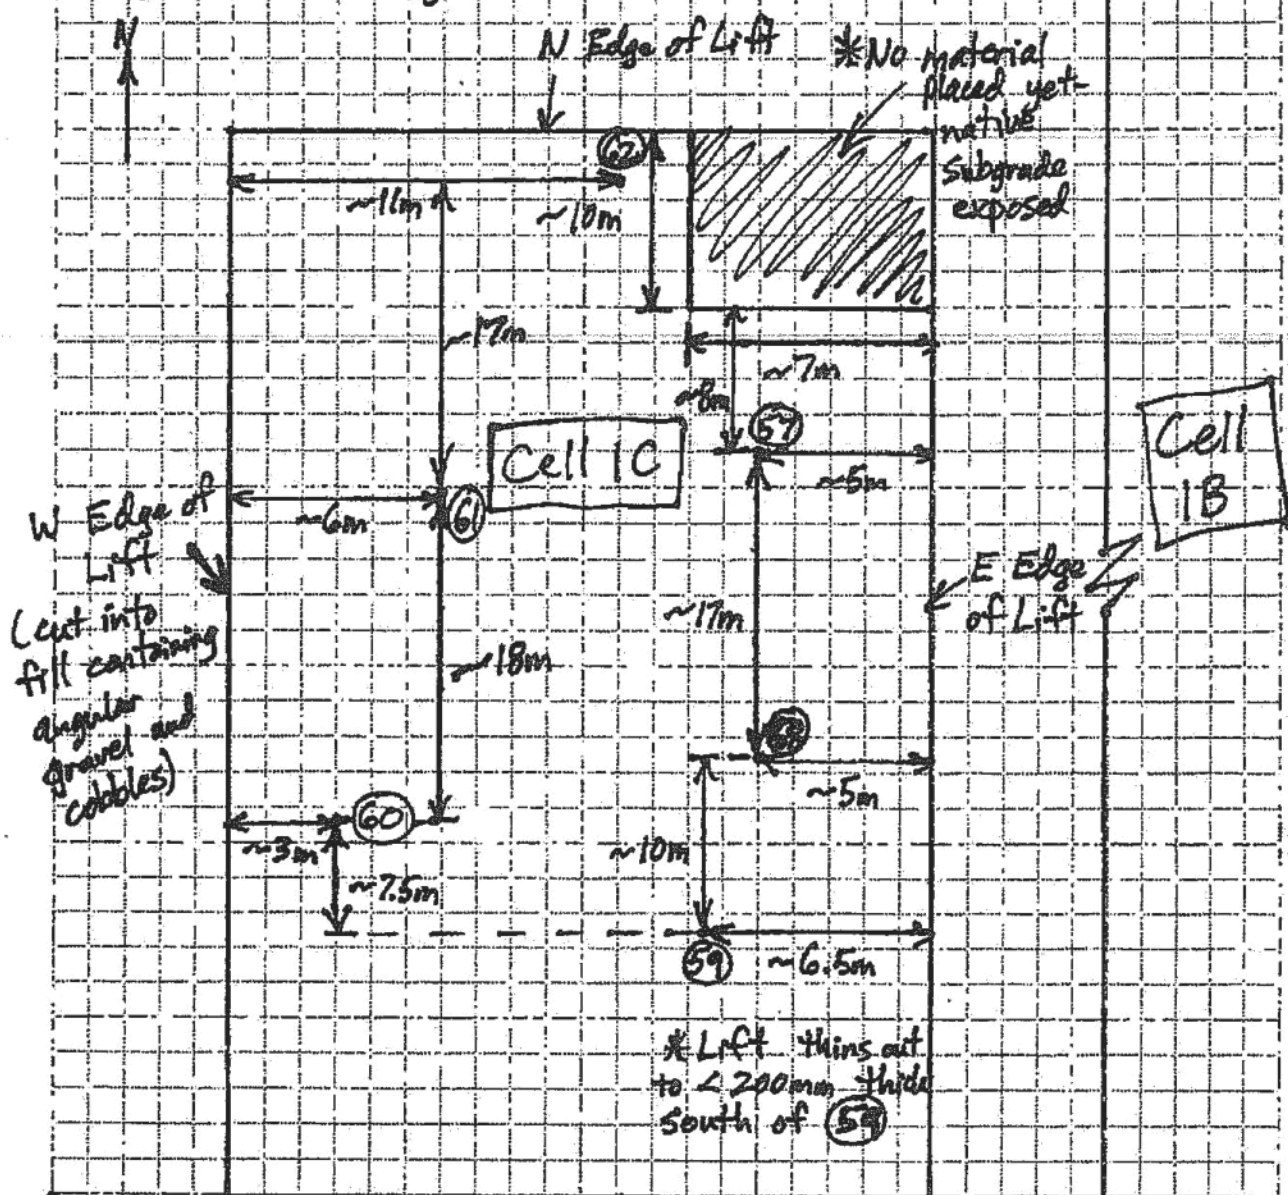 N
N Edge of Lift
*No material
placed yet-
native
subgrade
exposed
62
~11m
~10m
~17m
~7m
~8m
57
Cell 1C
~5m
Cell
1B
~6m
61
W Edge of
Lift
(cut into
fill containing
angular
gravel and
cobbles)
E Edge
of Lift
~17m
~18m
58
~5m
60
~3m
~10m
~7.5m
59
~6.5m
* Lift thins out
to < 200mm thick
south of 59